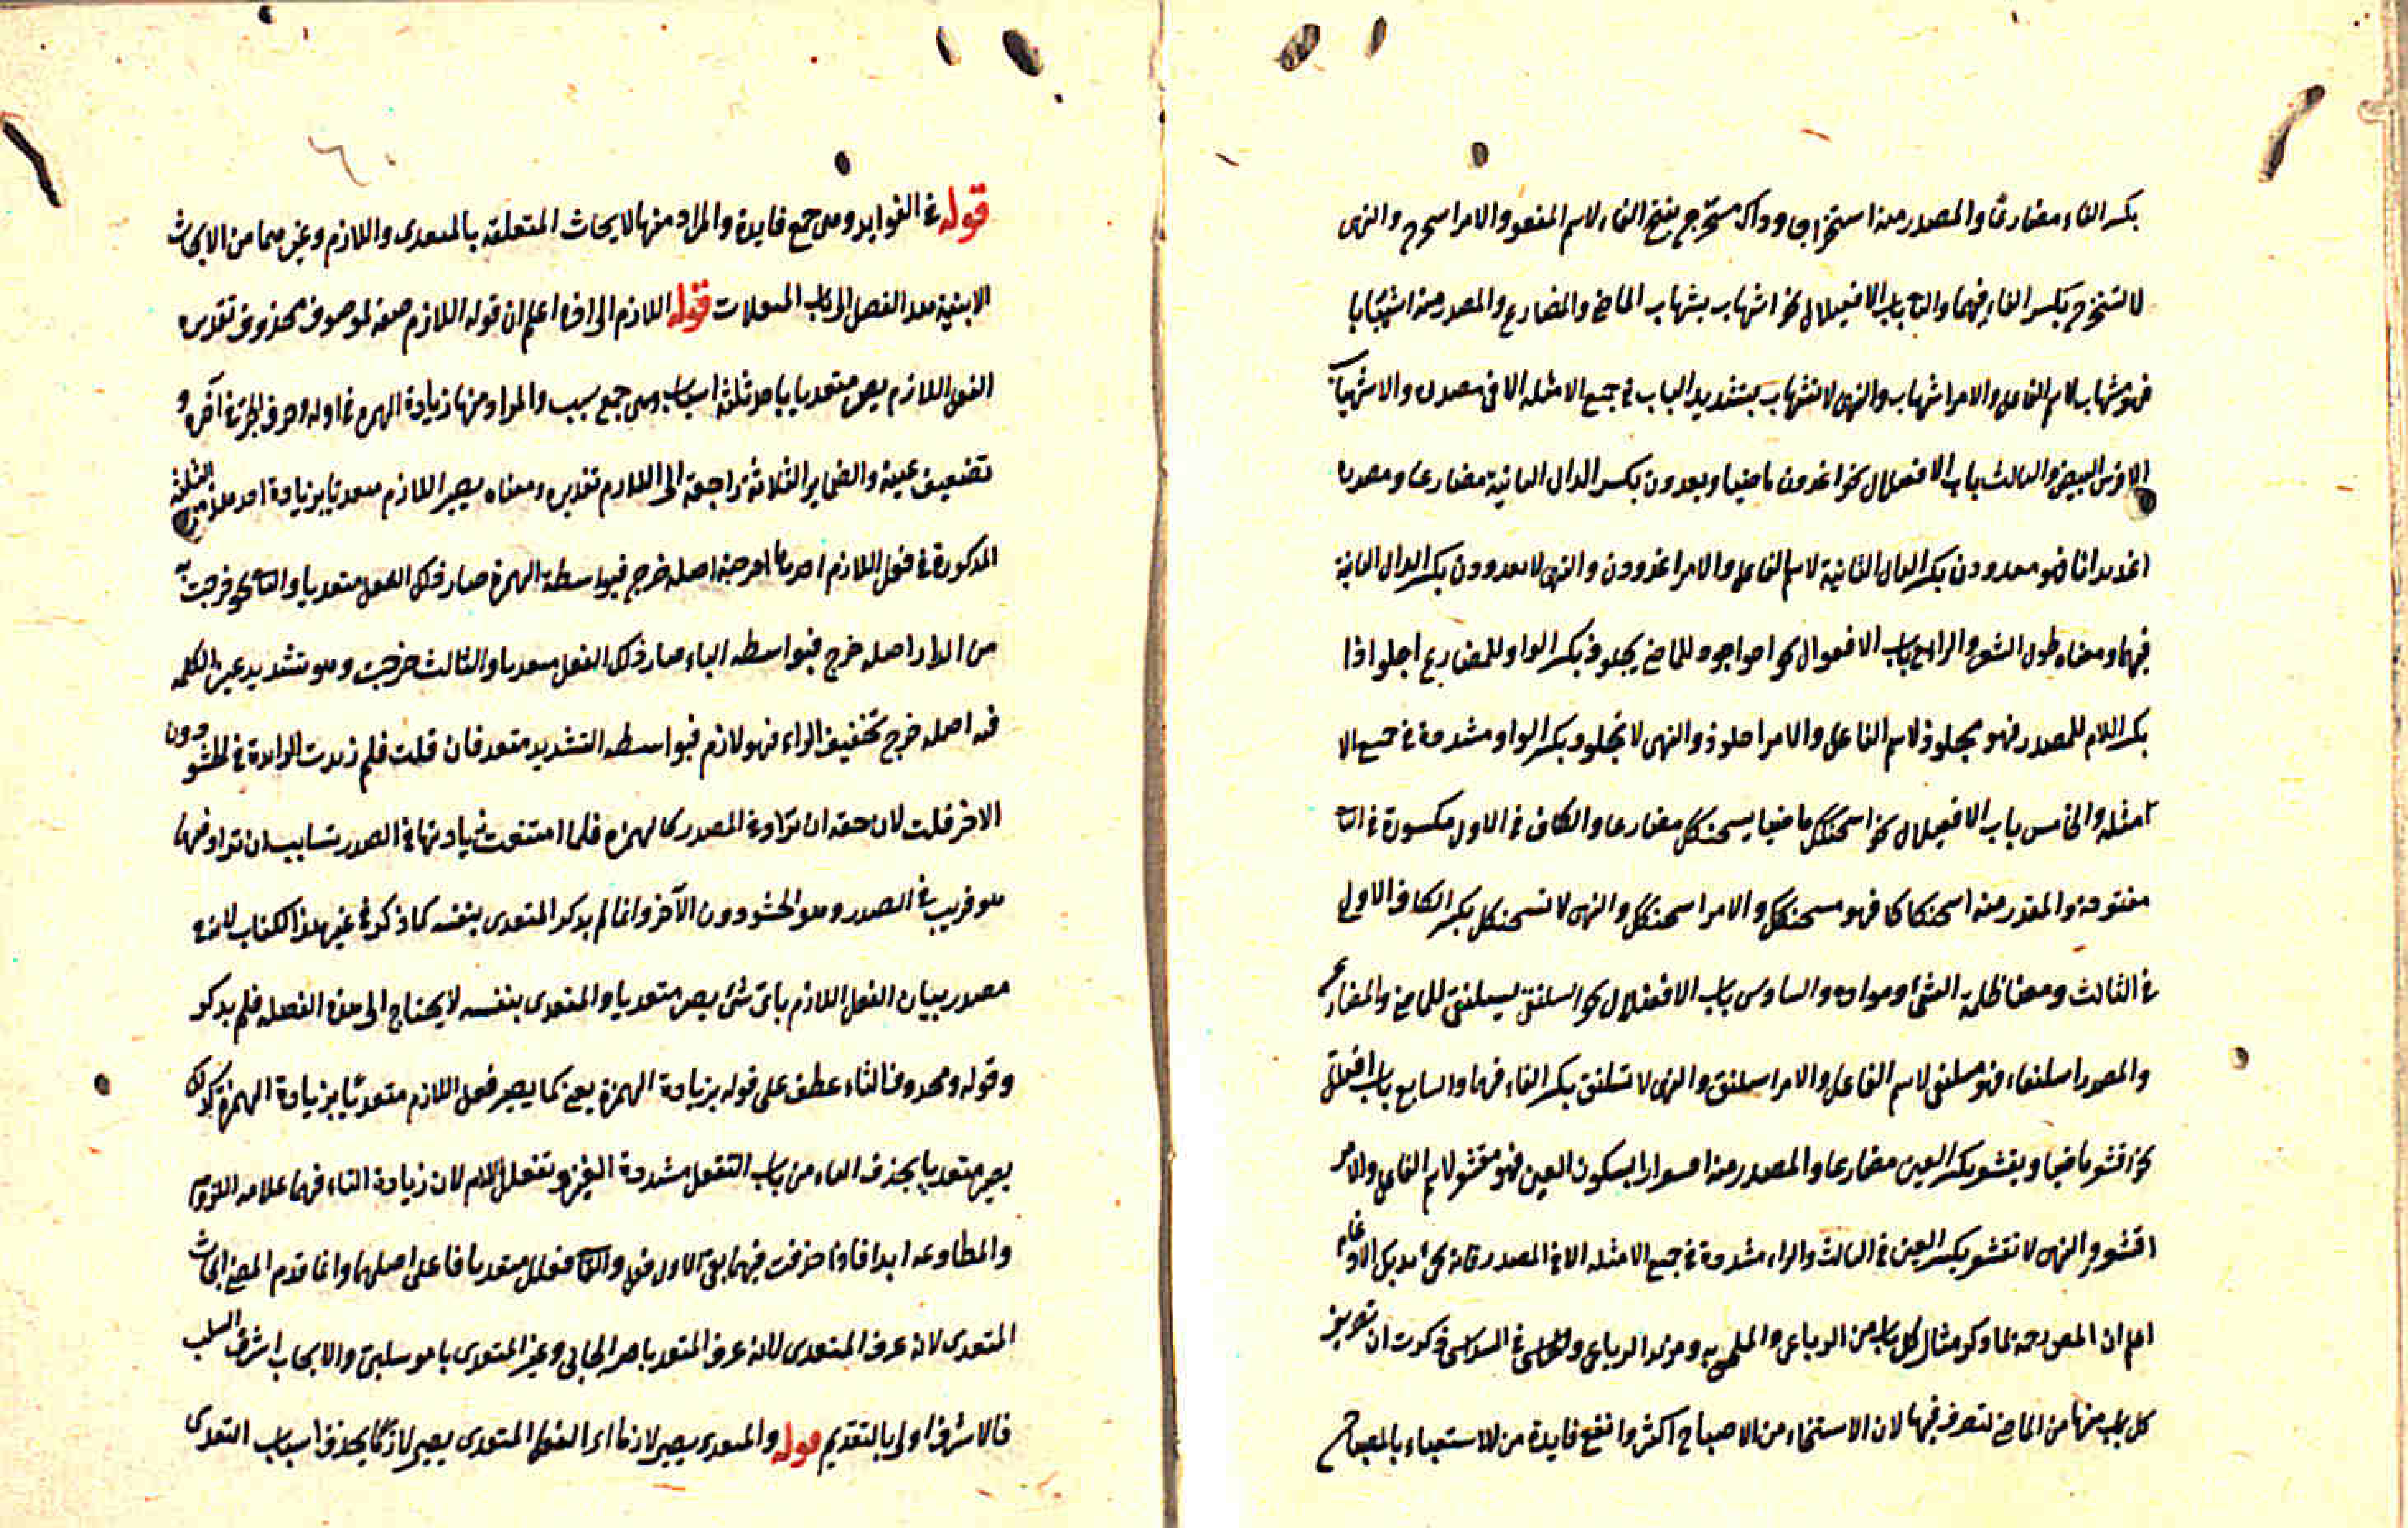 بكسر الفاء مضارعا والمصدر منه استخراجا وذاك مستخرج بفتح الفاء لاسم المفعو والامر استخرج والنهى
لا تستخرج بكسر الفاء فيهما والثانى باب الافعيلال نحو اشهاب يشهاب الماضى والمضارع والمصدر منه اشهيبابا
فهو مشهاب لاسم الفاعل والامر اشهاب والنهى لا تشهاب بتشديد الباب فى جميع الامثلة الا فى مصدره والاشهيباب
الافرس البيض والثالث باب الافعيلال نحو اغدودن ماضيا ويغدودن بكسر الدال الثانية مضارعا ومصدره
اغديدانا فهو مغدودن بكسر الدال الثانية لاسم الفاعل والامر اغدودن والنهى لا تغدودن بكسر الدال الثانية
فيهما ومعناه طول الشعر والرابع باب الافعوال نحو اجلوذ للماضى يجلوذ بكسر الواو للمضارع اجلواذا
بكسر اللام للمصدر فهو مجلوذ لاسم الفاعل والامر اجلوذ والنهى لا تجلوذ بكسر الواو مشددة فى جميع الا
مثله والخامس باب الافعيلال نحو اسحنكك ماضيا يسحنكك مضارعا والكاف فى الاول مكسورة فى الثانى
مفتوحة والمصدر منه اسحنكاكا فهو مسحنكك والامر اسحنكك والنهى لا تسحنكك بكسر الكاف الاولى
فى الثالث ومعنا ظلمة الشئ وسواده والسادس باب الافعنلال نحو اسلنقى يسلنقى للماضى والمضارع
والمصدر اسلنقاء فهو مسلنقى لاسم الفاعل والامر اسلنق والنهى لا تسلنق بكسر القاف فيهما والسابع باب افعلل
نحو اقشعر ماضيا ويقشعر بكسر العين مضارعا والمصدر منه اقشعرارا بسكون العين فهو مقشعر لاسم الفاعل والامر
اقشعر والنهى لا تقشعر بكسر العين فى الثالث والراء مشددة فى جميع الامثله الا فى المصدر فانه بفك الادغام
اعلم ان المص رحمه لما ذكر مثال كل باب من الرباعى والملحق به ومزيد الرباعى والخماسى والسداسى ذكرت ان تصريف
كل باب منها من الماضى لتعرف فيها لان الاستغناء من الاصباح اكثر وانفع فايدة من الاستصباء بالمصباح
قوله فى الفوايد وهى جمع فايدة والمراد منها الابحاث المتعلقة بالمتعدى واللازم وغيرهما من الابحاث
الابنية بعد الفصل الى باب المعتلات قوله اللازم الى اخره اعلم ان قوله اللازم صفة لموصوف محذوف تقديره
الفعل اللازم يصير متعديا باحد ثلثة اسباب وهى جمع سبب والمراد منها زيادة الهمزة فى اوله وحرف الجر فى آخره و
تضعيف عينه والضماير الثلاثة راجعة الى اللازم تقديره ومعناه يصير اللازم متعديا بزيادة احد هذه الثلثة
المذكورة فى فعل اللازم احدها اخرجته اصله خرج فبواسطة الهمزة صار ذلك الفعل متعديا والثانى نحو خرجت به
من الدار اصله خرج فبواسطه الباء صار ذلك الفعل متعديا والثالث خرجت وهو تشديد عين الكلمه
فيه اصله خرج بتخفيف الراء فهو لازم فبواسطه التشديد متعد فان قلت فلم زيدت الواحدة فى الحشو دون
الاخر قلت لان حقه ان تزاد فى المصدر كالهمزه فلما امتنعت زيادتها فى الصدر تناسب ان تزاد فيما
هو قريب فى الصدر وهو الحشو دون الآخر وانما لم يذكر المتعدى بنفسه كما ذكره فى غير هذا الكتاب لانه فى
مصدر بيان الفعل اللازم باى شئ يصير متعديا والمتعدى بنفسه لا يحتاج الى هذه الفصله فلم يذكر
وقوله وبحذف التاء عطف على قوله بزيادة الهمزة يعنى كما يصير فعل اللازم متعديا بزيادة الهمزة كذلك
يصير متعديا بحذف التاء من باب التفعل مشددة العين وتفعلل اللام لان زيادة التاء فيهما علامه اللزوم
والمطاوعه ابدا فاذا حذفت فيهما بقى الاول فعل والثانى فعلل متعديا فا على اصلهما وانما قدم المص ابحاث
المتعدى لانه عرف المتعدى لانه عرف المتعد با هو الجابى وغير المتعدى با هو سلبى والايجاب اشرف السلب
فالاشرف اولى بالتقديم قوله والمتعدى يصير لازما اى الفعل المتعدى يصير لازما بحذف اسباب التعدى